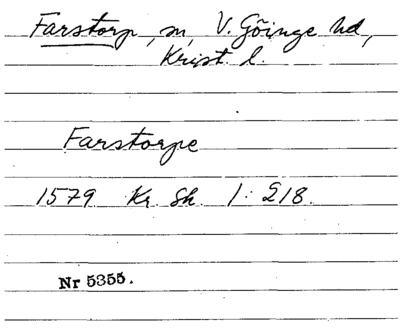 Farstorp, sn, V. Göinge hd,
Krist. l.
Farstorpe
1579 Kr. Sk. 1: 218.
Nr 5355.